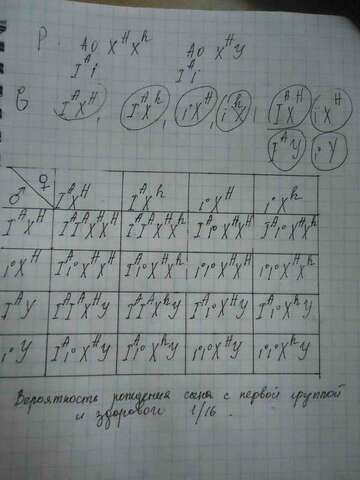 P. AO X^H X^h AO X^H Y
I^A i I^A i
G I^A X^H, I^A X^h, i X^H, i X^h I^A X^H i X^H
I^A Y i Y
♀ ♂ I^A X^H I^A X^h i° X^H i° X^h
I^A X^H I^A I^A X^H X^H I^A I^A X^H X^h I^A i° X^H X^H I^A i° X^H X^h
i° X^H I^A i° X^H X^H I^A i° X^H X^h i° i° X^H X^H i° i° X^H X^h
I^A Y I^A I^A X^H Y I^A I^A X^h Y I^A i° X^H Y I^A i° X^h Y
i° Y I^A i° X^H Y I^A i° X^h Y i° i° X^H Y i° i° X^h Y
Вероятность рождения сына с первой группой
и здоровой 1/16.